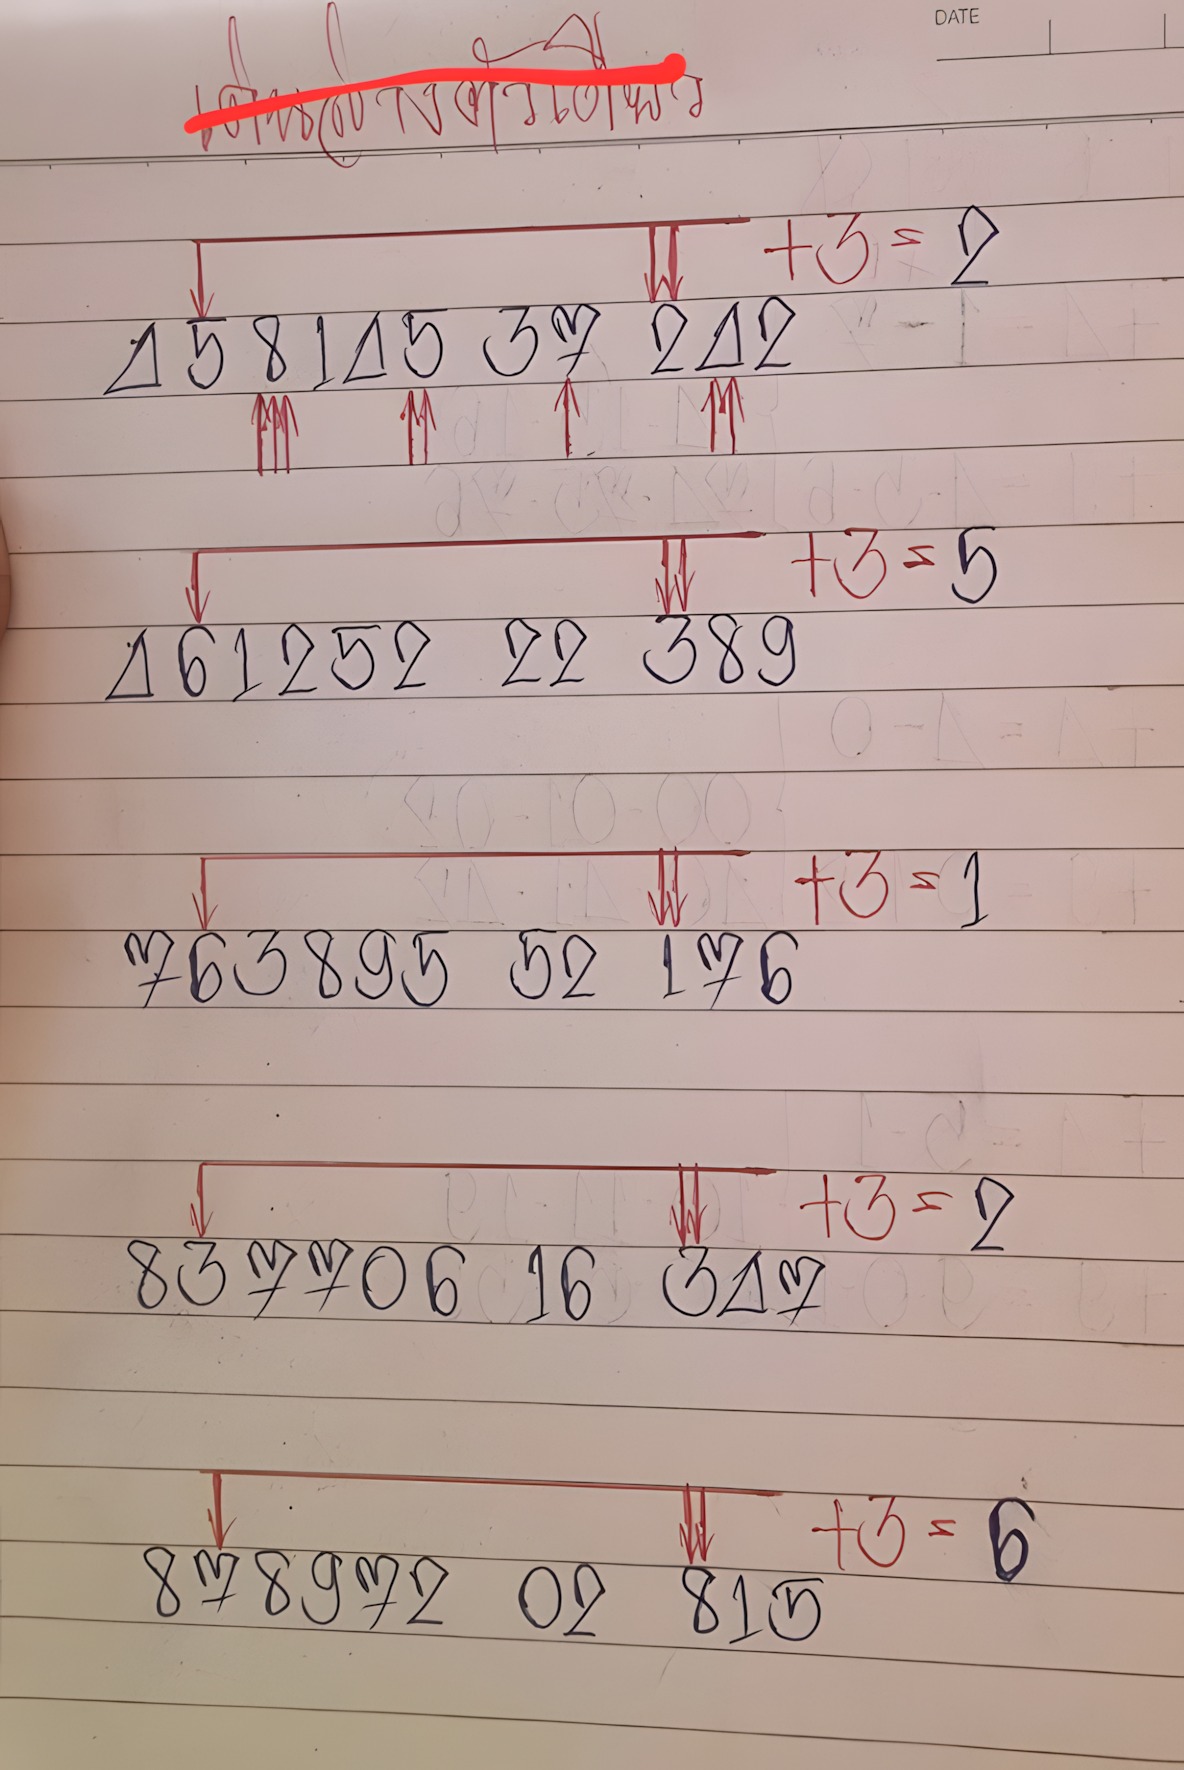 DATE
+3=2
458145 37 242
+3=5
461252 22 389
+3=1
763895 52 176
+3=2
837706 16 347
+3=6
878972 02 815